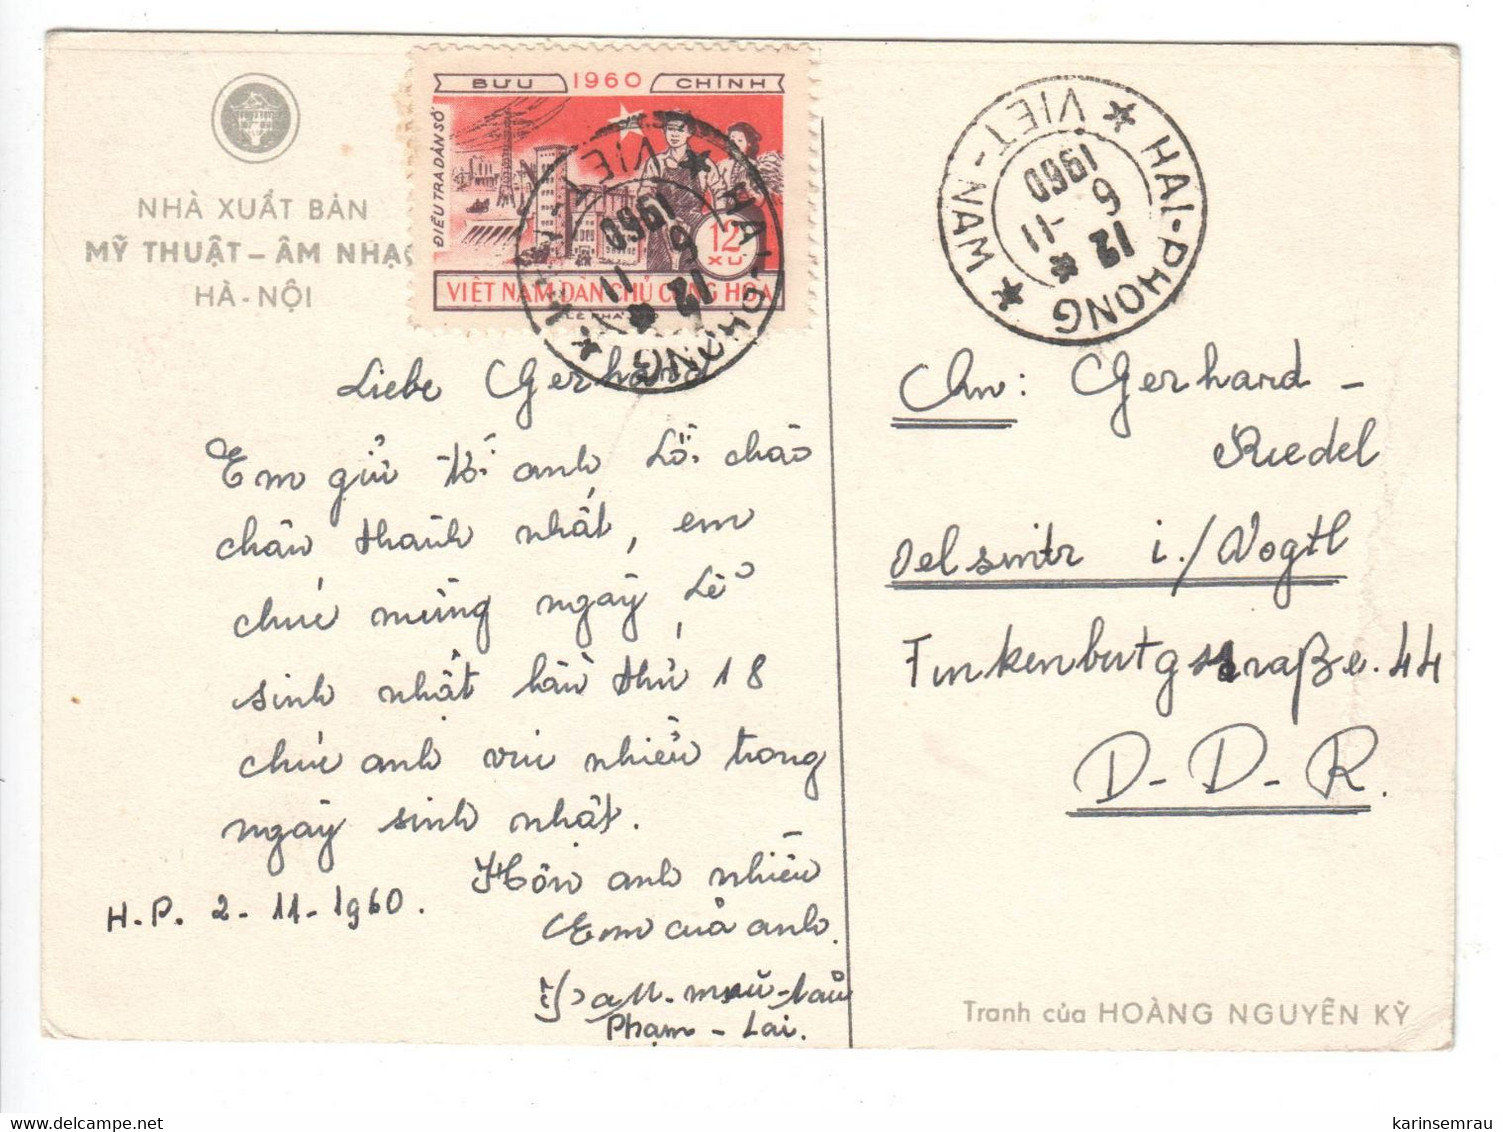 NHÀ XUẤT BẢN
MỸ THUẬT – ÂM NHẠC
HÀ - NỘI
BƯU 1960 CHÍNH
ĐIỀU TRA DÂN SỐ
12 XU
VIỆT NAM DÂN CHỦ CỘNG HÒA
HAI-PHONG ★ VIET-NAM ★
12 ★
6 -11
1960
HAI-PHONG ★ VIET-NAM ★
12 ★
6 -11
1960
Liebe Gerhard
Em gửi tới anh lời chào
chân thành nhất, em
chúc mừng ngày Lễ
sinh nhật lần thứ 18
chúc anh vui nhiều trong
ngày sinh nhật.
Hôn anh nhiều
H.P. 2-11-1960. Em của anh.
Phạm - Lai.
An: Gerhard -
Riedel
Oelsnitz i./Vogtl
Finkenburgstraße. 44
D-D-R.
Tranh của HOÀNG NGUYÊN KỲ
karinsemrau